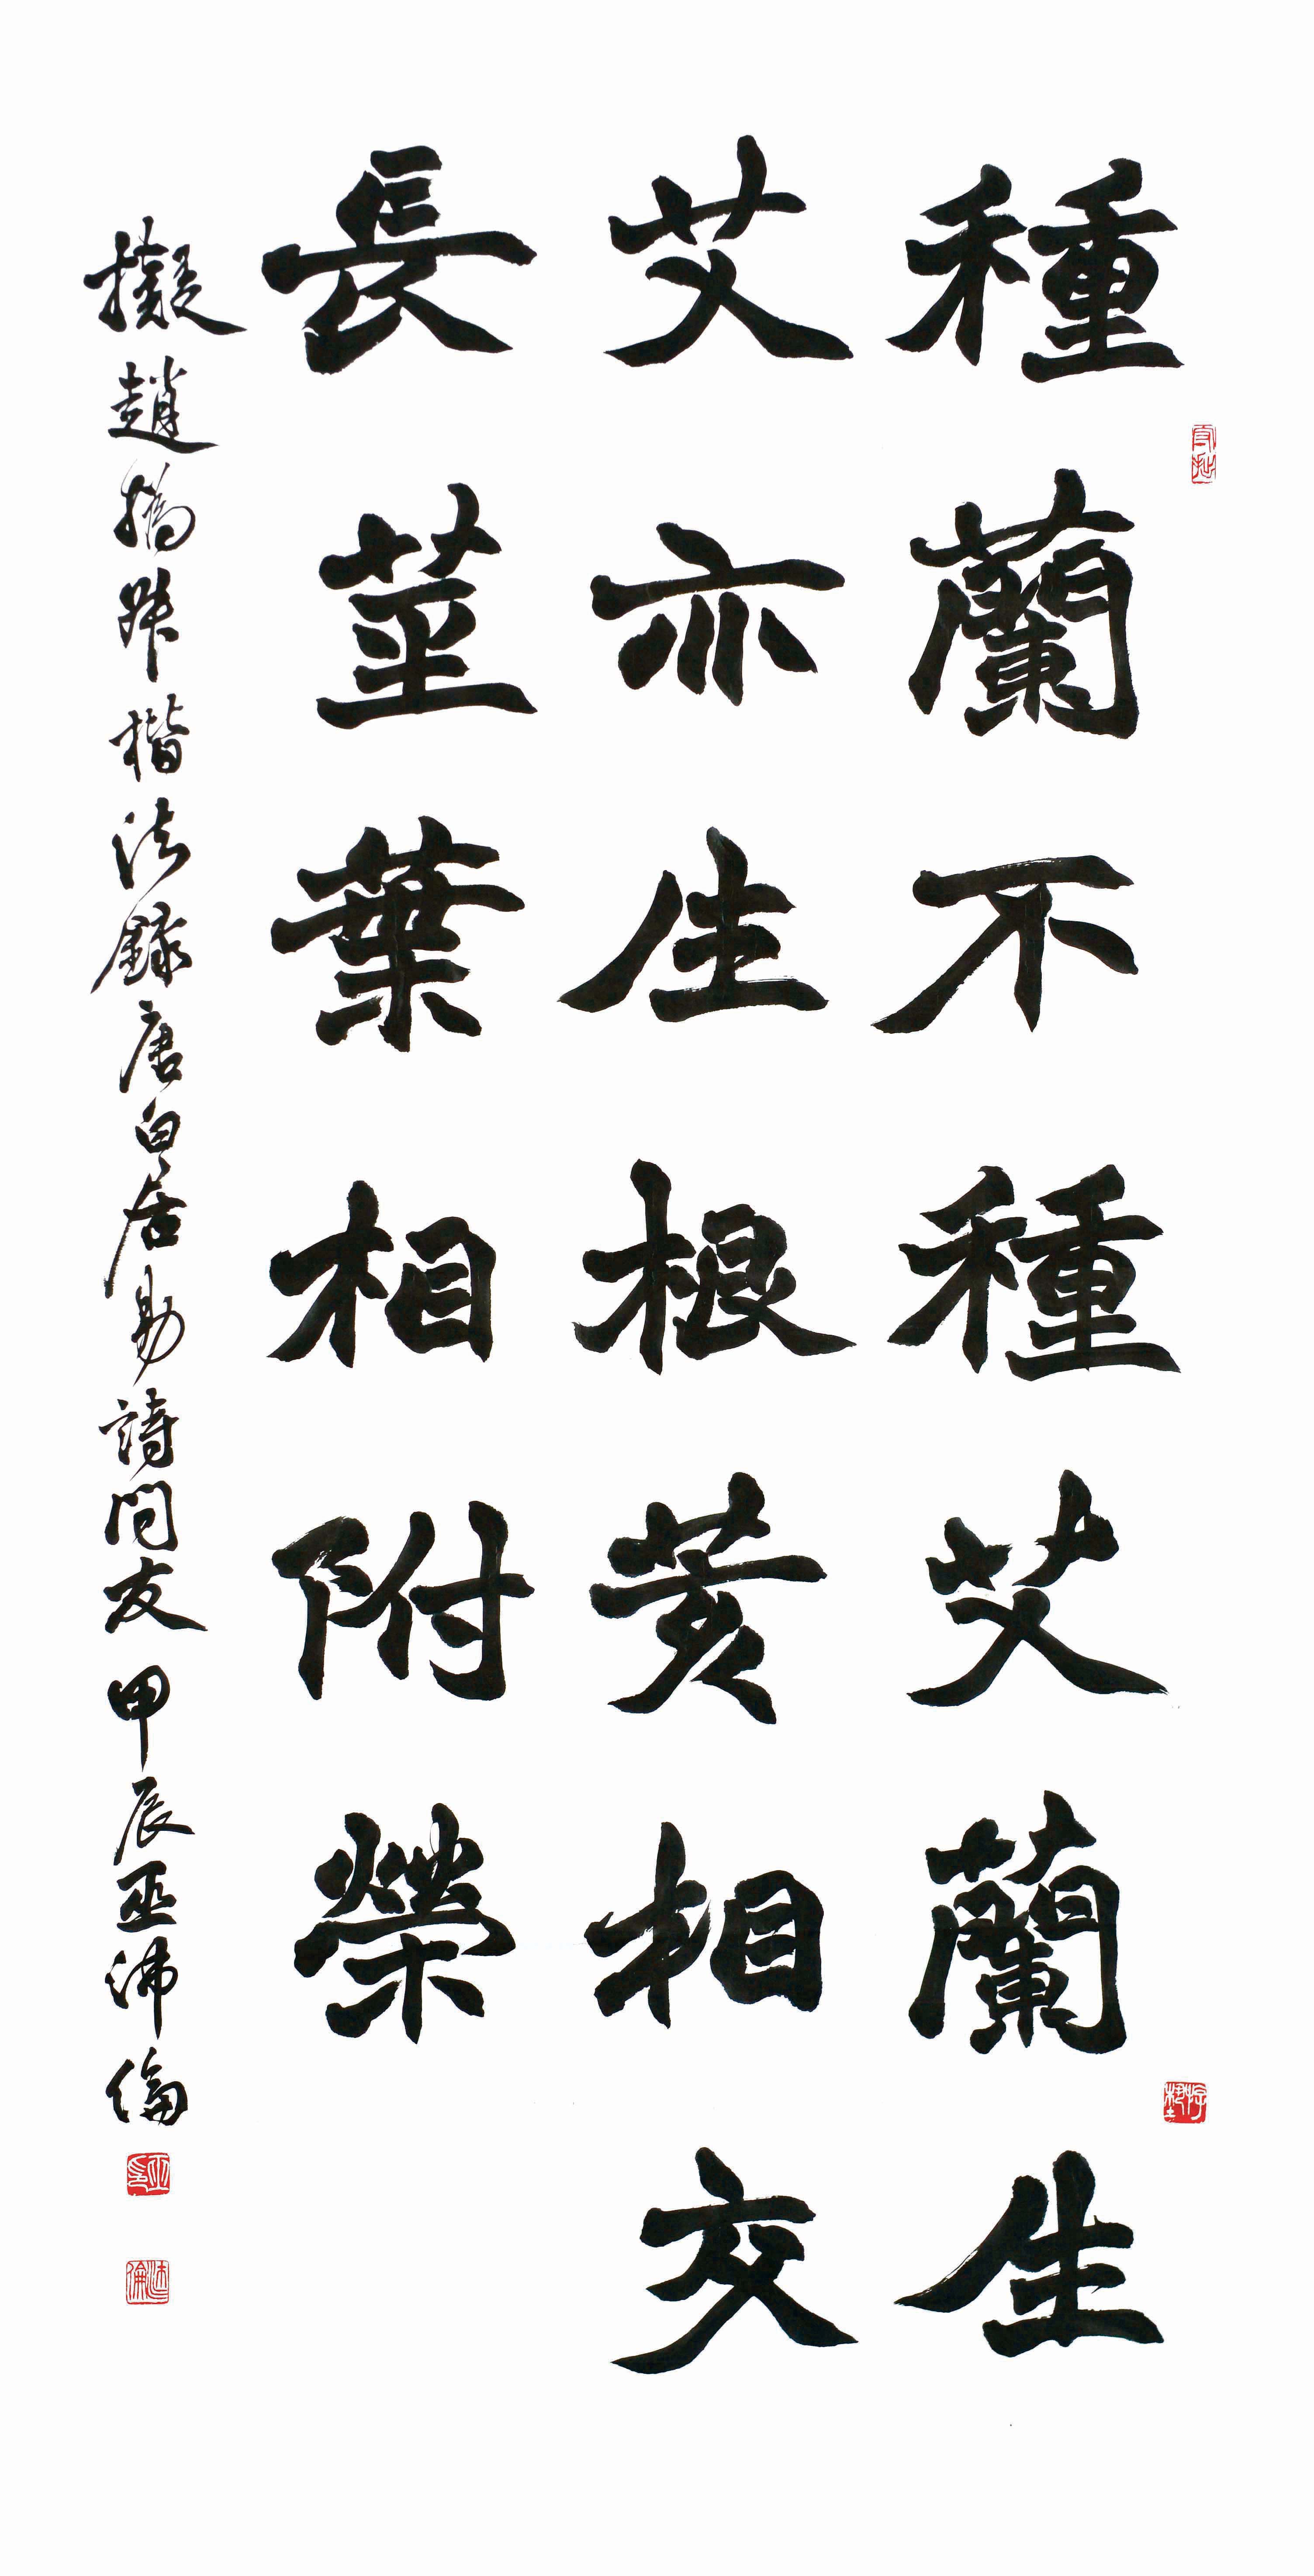 種蘭不種艾蘭生
艾亦生根荄相交
長莖葉相附榮
擬趙撝叔楷法錄唐白居易詩問友 甲辰巫沛倫
巫印
沛倫